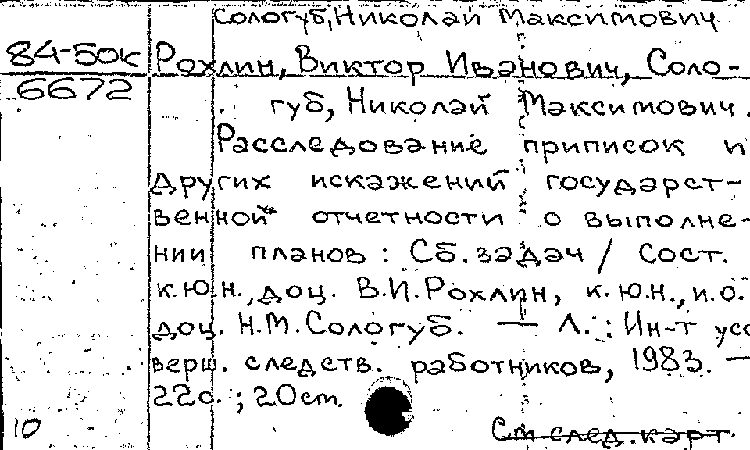 Сологуб, Николай Максимович
84-50к Рохлин, Виктор Иванович, Соло-
6672 губ, Николай Максимович.
Расследование приписок и
других искажений государст-
венной отчетности о выполне-
нии планов : Сб. задач / Сост.
к.ю.н., доц. В.И.Рохлин, к.ю.н., и.о.
доц. Н.М.Сологуб. — Л. : Ин-т усо
верш. следств. работников, 1983. —
22с. ; 20см.
10 См след. карт